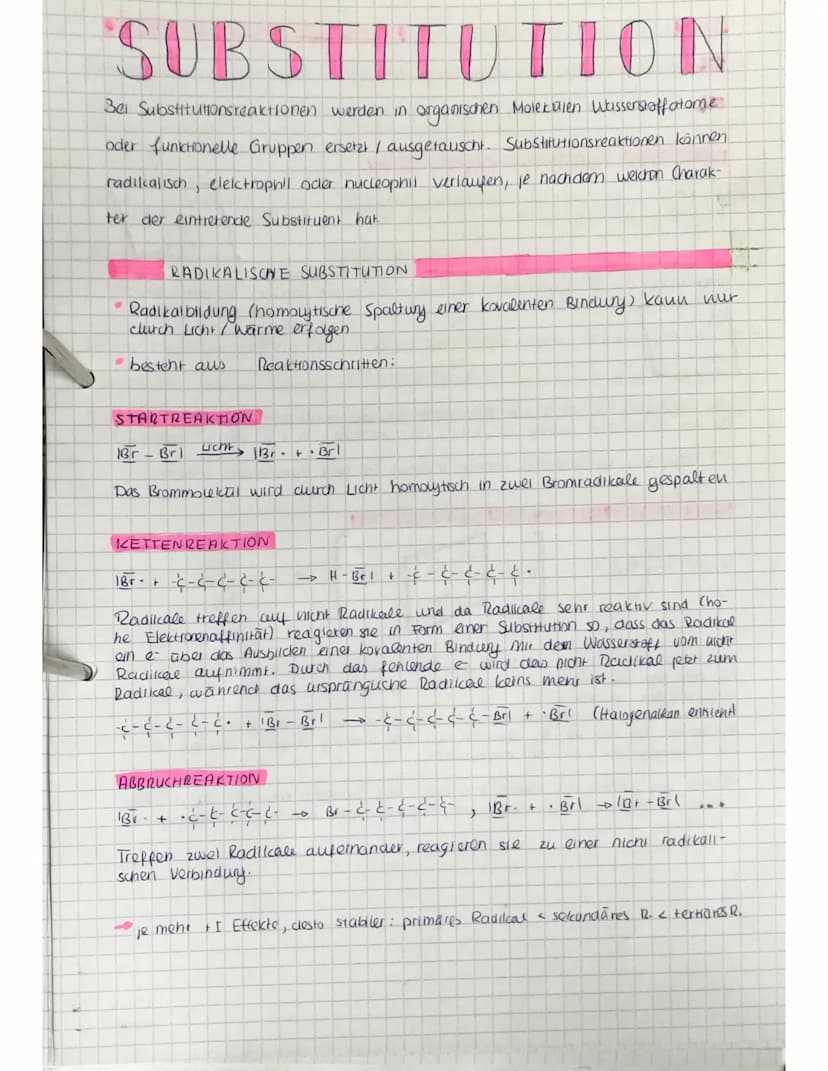 SUBSTITUTION
Bei Substitutionsreaktionen werden in organischen Molekülen Wasserstoffatome
oder funktionelle Gruppen ersetzt / ausgetauscht. Substitutionsreaktionen können
radikalisch, elektrophil oder nucleophil verlaufen, je nachdem welchen Charak-
ter der eintretende Substituent hat.
RADIKALISCHE SUBSTITUTION
• Radikalbildung (homolytische Spaltung einer kovalenten Bindung) kann nur
durch Licht / Wärme erfolgen
• besteht aus Reaktionsschritten:
STARTREAKTION
|Br - Br| Licht → |Br · + · Br|
Das Brommolekül wird durch Licht homolytisch in zwei Bromradikale gespalten
KETTENREAKTION
|Br · + -C-C-C-C-C- → H - Br| + -C-C-C-C-C ·
Radikale treffen auf nicht Radikale und da Radikale sehr reaktiv sind (ho-
he Elektronenaffinität) reagieren sie in Form einer Substitution so, dass das Radikal
ein e⁻ über das Ausbilden einer kovalenten Bindung mit dem Wasserstoff vom nicht
Radikal aufnimmt. Durch das fehlende e⁻ wird das nicht Radikal jetzt zum
Radikal, während das ursprüngliche Radikal keins mehr ist.
-C-C-C-C-C · + |Br - Br| → -C-C-C-C-C-Br| + ·Br| (Halogenalkan entsteht)
ABBRUCHREAKTION
|Br · + ·C-C-C-C-C- → Br-C-C-C-C-C- , |Br · + · Br| → |Br - Br| ...
Treffen zwei Radikale aufeinander, reagieren sie zu einer nicht radikali-
schen Verbindung.
→ je mehr +I Effekte, desto stabiler: primäres Radikal < sekundäres R. < tertiäres R.